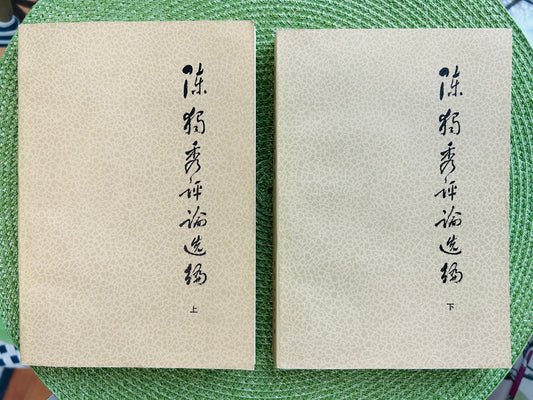 陈独秀评论选编
上
陈独秀评论选编
下